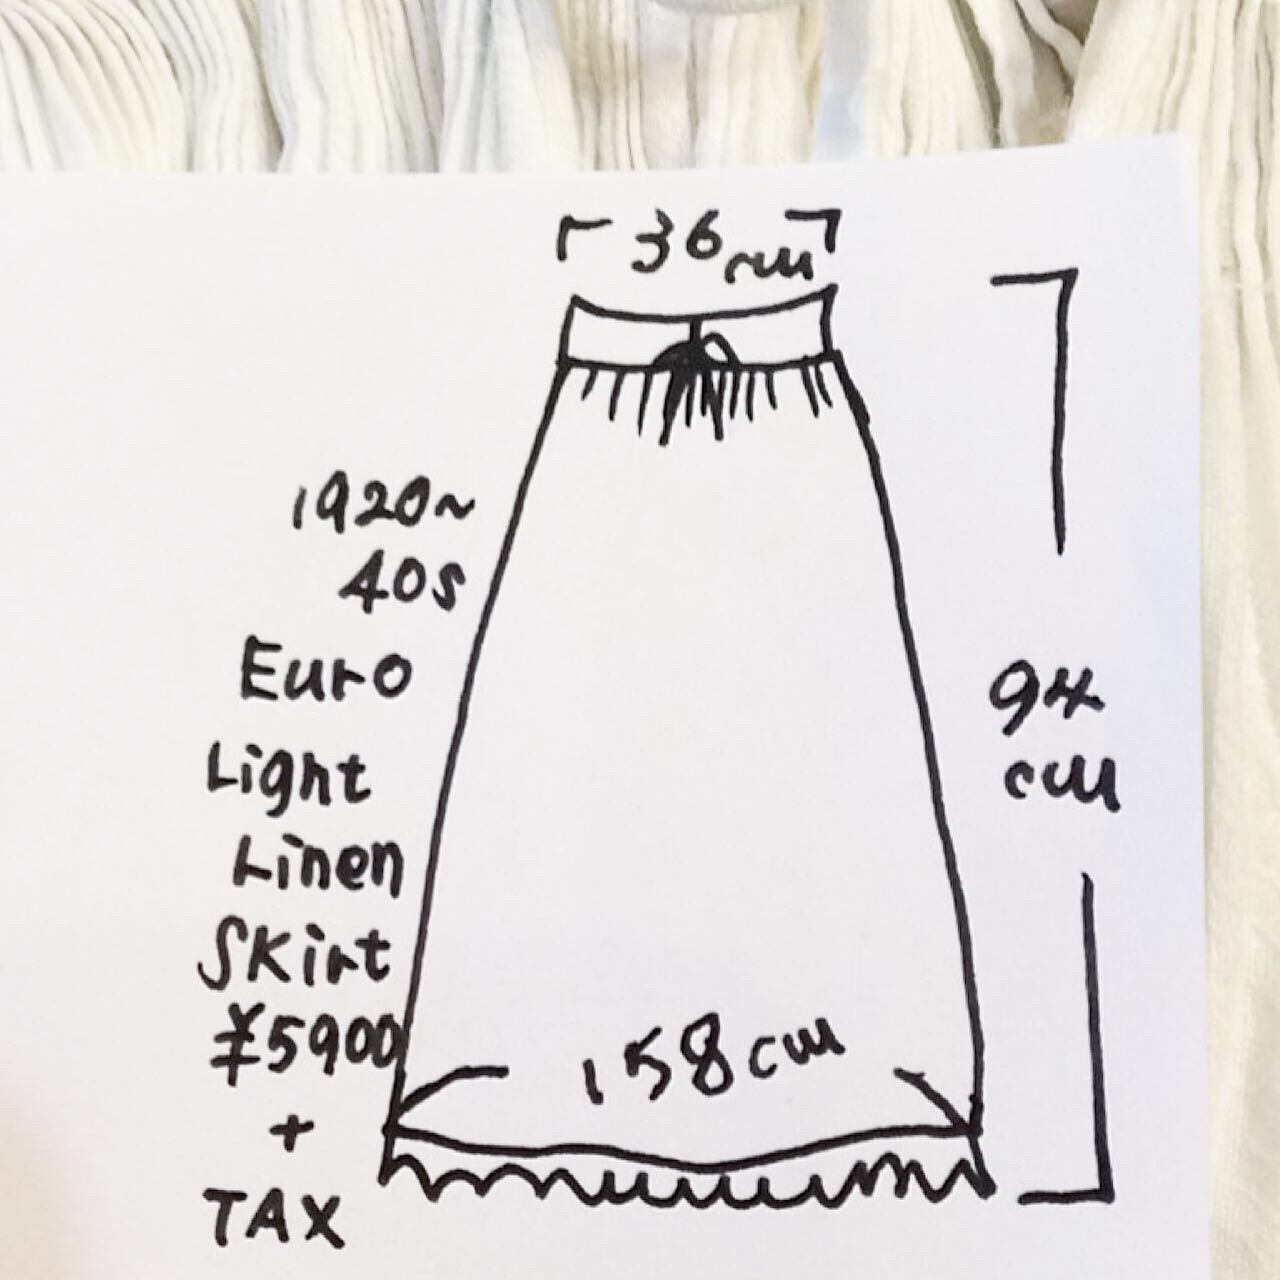 36cm
1920~
40s
Euro
Light
Linen
Skirt
¥5900
+
TAX
94
cm
158cm